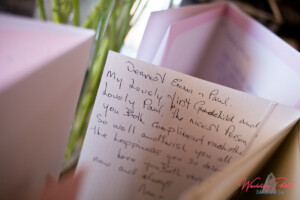 Dearest Emma n Paul.
My Lovely First Grandchild and
Lovely Paul, the nicest Person,
you Both Compliment each other
So well and wish you all
the happiness you so deserve
Love you Both now
now and always
Nan